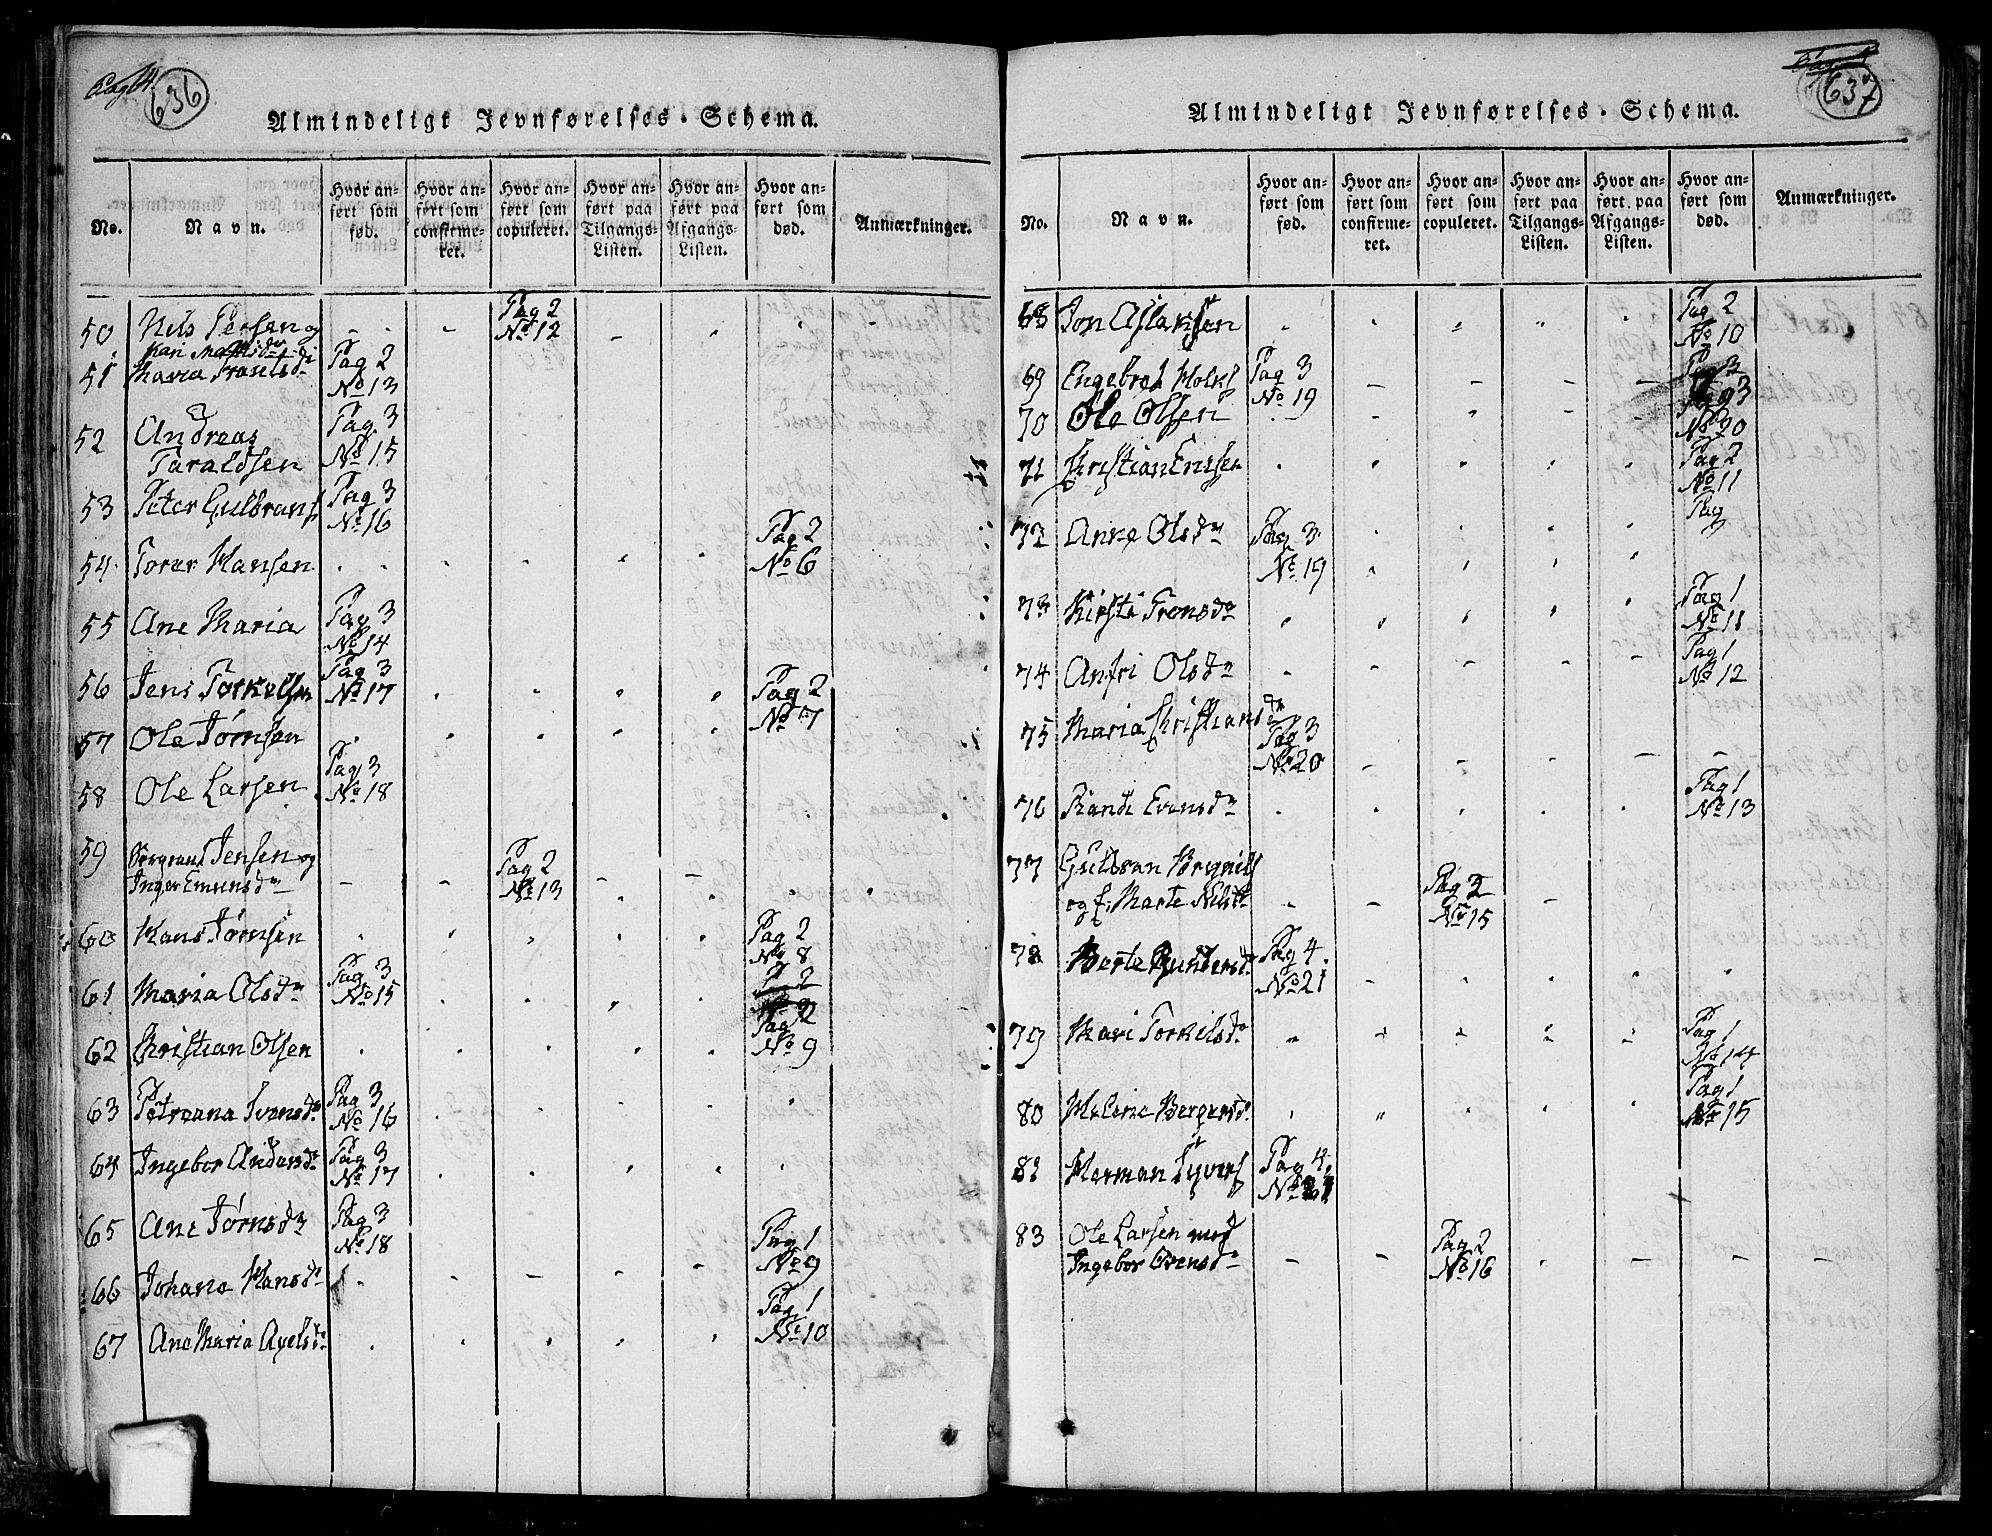 Pag 4
636
Almindeligt Jevnførelses-Schema.
No.
Navn.
Hvor an-
ført som
fød.
Hvor an-
ført som
confirme-
ret.
Hvor an-
ført som
copuleret.
Hvor an-
ført paa
Tilgangs-
Listen.
Hvor an-
ført paa
Afgangs-
Listen.
Hvor an-
ført som
død.
Anmærkninger.
50 Nils Persen og Pag 2
Kari No 12
51 Maria Pag 2
No 13
52 Andreas Pag 3
Taraldsen No 15
53 Peter Gulbrans Pag 3
No 16
54 Torer Hansen Pag 2
No 6
55 Ane Maria Pag 3
No 14
56 Jens Torkelsen Pag 3
No 17 Pag 2
No 7
57 Ole Tørnsen
58 Ole Larsen Pag 3
No 18
59 Jensen og Pag 2
Inger Emunsdr No 13
60 Hans Tørnsen Pag 2
No 8
61 Maria Olsdr Pag 3
No 15
62 Christian Olsen Pag 2
No 9
63 Petreana Ivensdr Pag 3
No 16
64 Ingebor Andersdr Pag 3
No 17
65 Ane Tørnsdr Pag 3
No 18
66 Johane Hansdr Pag 1
No 9
67 Ane Maria Axelsdr Pag 1
No 10
637
Almindeligt Jevnførelses-Schema.
No.
Navn.
Hvor an-
ført som
fød.
Hvor an-
ført som
confirme-
ret.
Hvor an-
ført som
copuleret.
Hvor an-
ført paa
Tilgangs-
Listen.
Hvor an-
ført paa
Afgangs-
Listen.
Hvor an-
ført som
død.
Anmærkninger.
68 Jon Aslaksen Pag 2
No 10
69 Engebret Holk Pag 3
No 19
70 Ole Olsen Pag 3
No 20
71 Christian Pag 2
No 11
Pag
72 Anne Olsdr Pag 3
No 19
73 Kirsti Tronsdr Pag 1
No 11
74 Anfri Olsdr Pag 1
No 12
75 Maria Christiansdr Pag 3
No 20
76 Randi Evensdr Pag 1
No 13
77 Gulbran
og f. Marte Nilsdr Pag 2
No 15
78 Berte Gundersdr Pag 4
No 21
79 Mari Torkilsdr Pag 1
No 14
80 Helene Bergersdr Pag 1
No 15
81 Herman Pag 4
No 21
83 Ole Larsen med Pag 2
Ingebor No 16